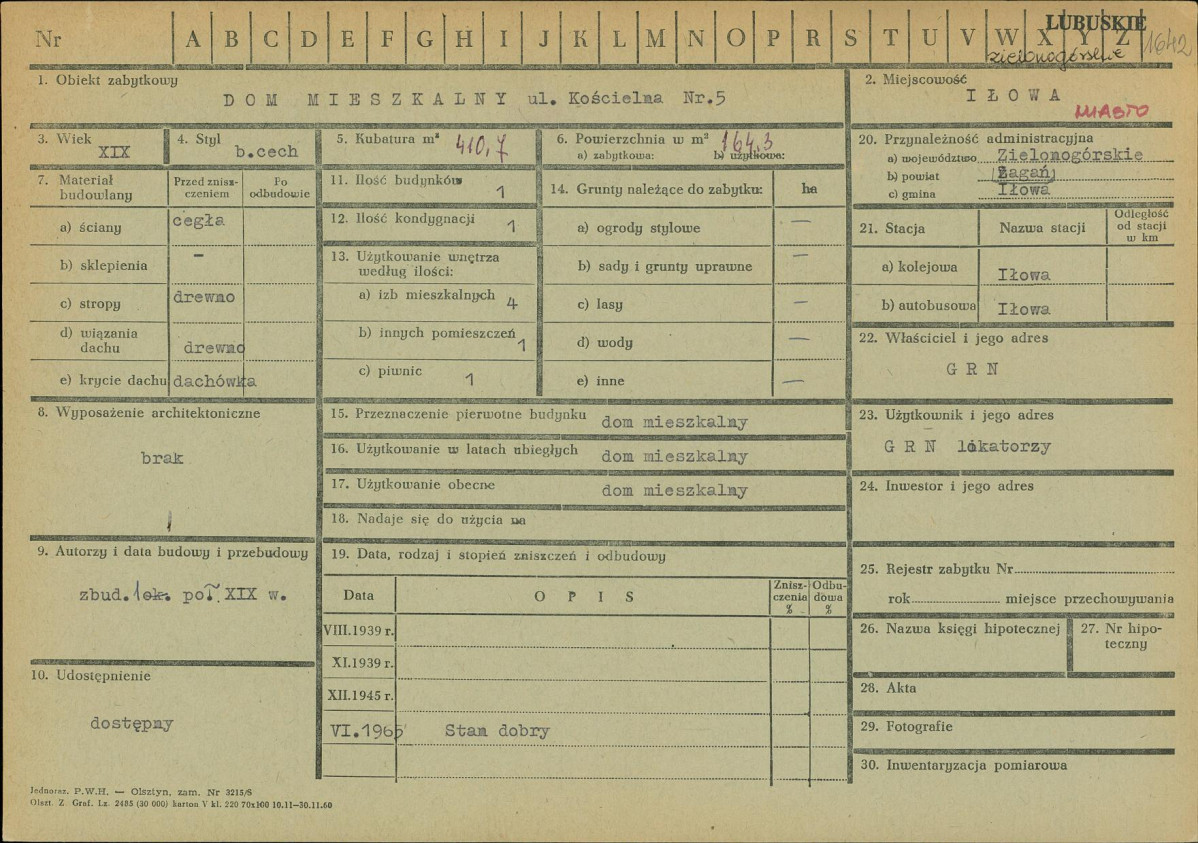 Nr A B C D E F G H I J K L M N O P R S T U V W X Y Z
LUBUSKIE
zielonogórskie
1642
1. Obiekt zabytkowy
DOM MIESZKALNY ul. Kościelna Nr.5
2. Miejscowość
IŁOWA
MIASTO
3. Wiek
XIX
4. Styl
b.cech
5. Kubatura m³
410,7
6. Powierzchnia w m²
164,3
a) zabytkowa: b) użytkowa:
7. Materiał budowlany
Przed zniszczeniem
Po odbudowie
a) ściany cegła
b) sklepienia –
c) stropy drewno
d) wiązania dachu drewno
e) krycie dachu dachówka
8. Wyposażenie architektoniczne
brak
9. Autorzy i data budowy i przebudowy
zbud. 1 poł. XIX w.
10. Udostępnienie
dostępny
11. Ilość budynków 1
12. Ilość kondygnacji 1
13. Użytkowanie wnętrza
według ilości:
a) izb mieszkalnych 4
b) innych pomieszczeń 1
c) piwnic 1
14. Grunty należące do zabytku: ha
a) ogrody stylowe —
b) sady i grunty uprawne —
c) lasy —
d) wody —
e) inne —
15. Przeznaczenie pierwotne budynku dom mieszkalny
16. Użytkowanie w latach ubiegłych dom mieszkalny
17. Użytkowanie obecne dom mieszkalny
18. Nadaje się do użycia na
19. Data, rodzaj i stopień zniszczeń i odbudowy
Data OPIS Zniszczenia % Odbudowa %
VIII.1939 r.
XI.1939 r.
XII.1945 r.
VI.1965 Stan dobry
20. Przynależność administracyjna
a) województwo Zielonogórskie
b) powiat Żagań
c) gmina Iłowa
21. Stacja Nazwa stacji Odległość od stacji w km
a) kolejowa Iłowa
b) autobusowa Iłowa
22. Właściciel i jego adres
G R N
23. Użytkownik i jego adres
G R N lokatorzy
24. Inwestor i jego adres
25. Rejestr zabytku Nr
rok miejsce przechowywania
26. Nazwa księgi hipotecznej
27. Nr hipoteczny
28. Akta
29. Fotografie
30. Inwentaryzacja pomiarowa
Jednoraz. P.W.H. — Olsztyn, zam. Nr 3215/S
Olszt. Z. Graf. Lz. 2485 (30 000) karton V kl. 220 70x100 10.11—30.11.60